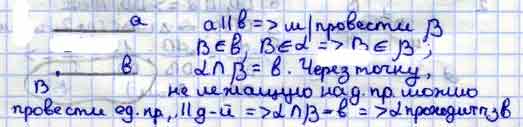 a
a || b => м/провести β
B ∈ b, B ∈ α => B ∈ β ;
b
α ∩ β = b. Через точку,
B
не лежащую на д. пр. можно
провести ед. пр., || д-й => α ∩ β = b => α проходит ч-з b